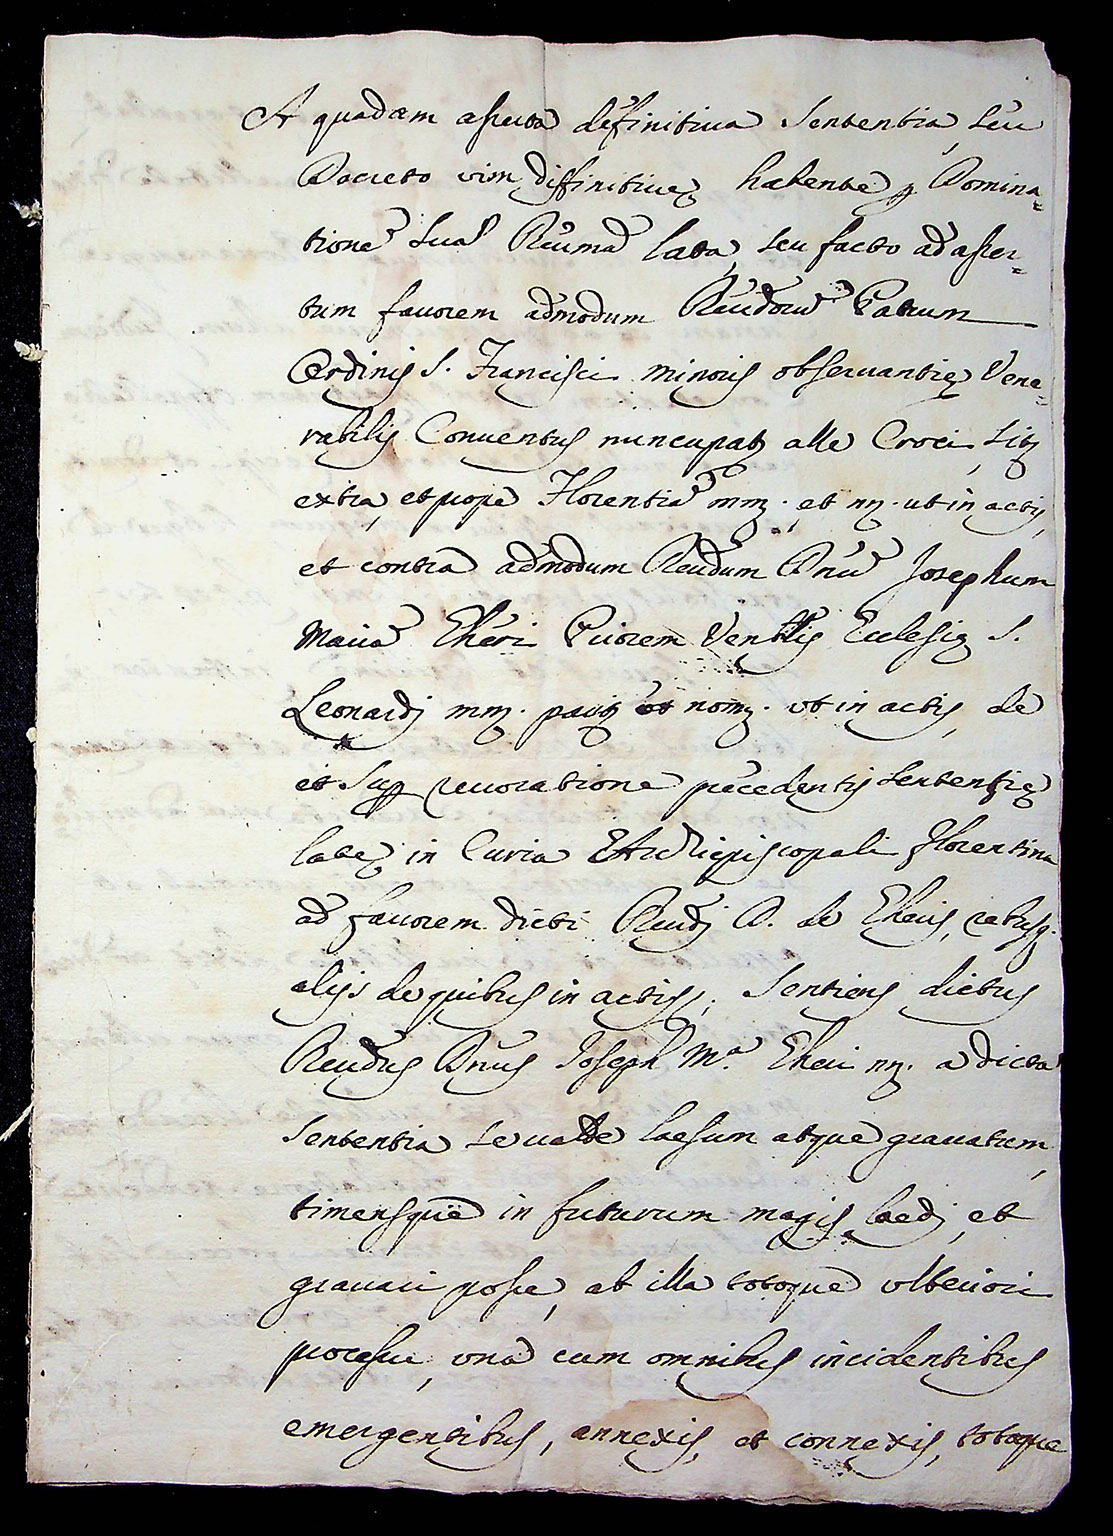 A quadam asserta definitiua Sententia, seu
Decreto vim diffinitiuę habente p Domina-
tione Sua Reuma lata, seu facto ad asser-
tum fauorem admodum Reudorũ Patrum
Ordinis S. Francisci minoris obseruantię Vene-
rabilis Conuentus nuncupatj alle Croci, sitj
extra, et prope Florentiã mm. et nn. ut in actis,
et contra admodum Reudum Dnũ Josephum
Mariã Cheri Priorem Venblis Ecclesię S.
Leonardj mm. et nom. ut in actis, de
et Sup reuocatione precedentis sententię
latę in Curia Archiepiscopali Florentina
ad fauorem dicti Reudj D. de Cheris, rebusq.
alijs de quibus in actis; Sentiens dictus
Reudus Dnus Joseph Ma. Cheri nn. a dicta
Sententia se ualde laesum atque grauatum,
timensque in futurum magis laedj, et
grauari posse, ab illa totoque vlteriori
processu, una cum omnibus incidentibus
emergentibus, annexis, et connexis, totoque